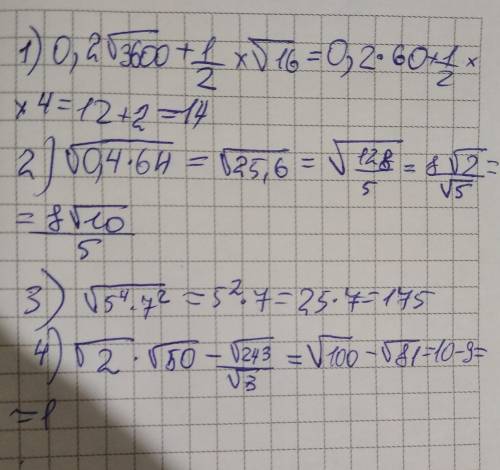 1) 0,2√3600 + 1/2 × √16 = 0,2·60 + 1/2 ×
× 4 = 12 + 2 = 14
2) √0,4·64 = √25,6 = √128/5 = 8√2/√5 =
= 8√10/5
3) √5⁴·7² = 5²·7 = 25·7 = 175
4) √2 · √50 - √243/√3 = √100 - √81 = 10 - 9 =
= 1